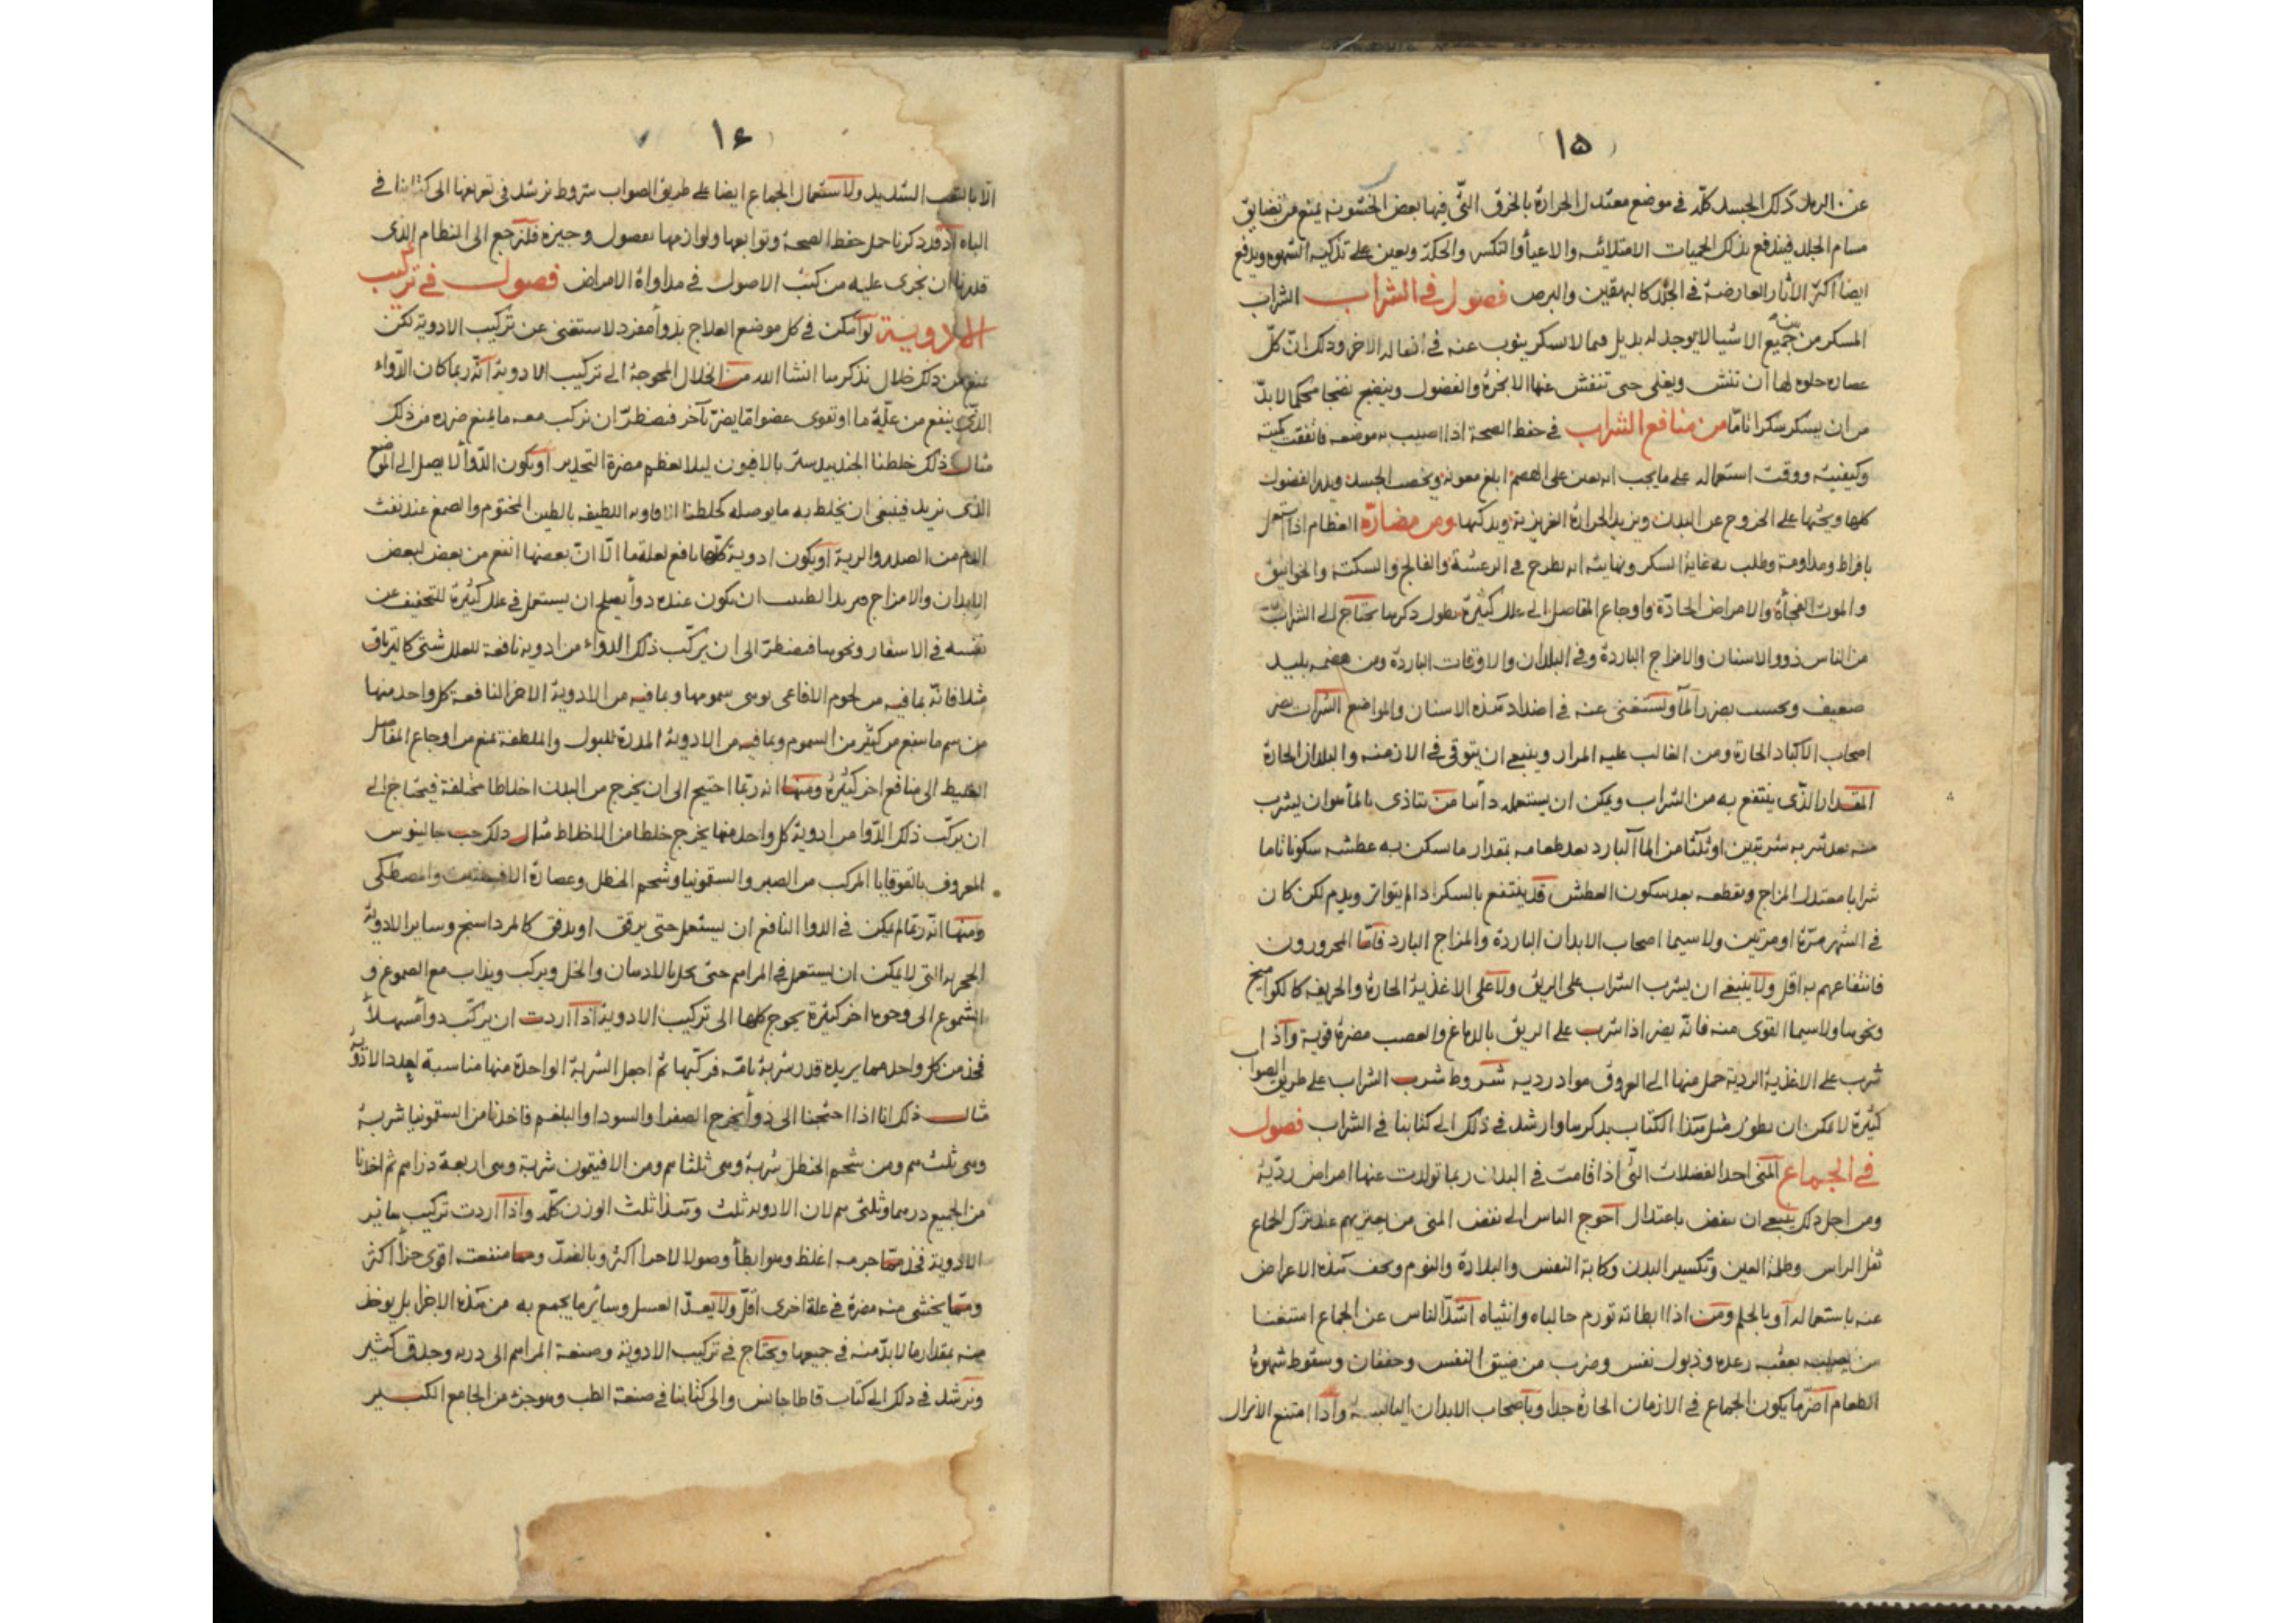 (١۵)
عن البدن ذلك الجسد كلّه في موضع معتدل الحرارة بالخرق التّى فيها بعض الخشونه يمنع من تضايق
مسام الجلد فيندفع بذلك الحميات الامتلائيه والاعيا والتكسر والحكة ويعين على تذكيه الشهوه ويدفع
ايضا اكثر الاثار العارضة في الجلد كالبهقين والبرص فصول في الشراب الشراب
المسكر من بين جميع الاشيا لا يوجد له بديل فيما لا يسكر ينوب عنه في افعاله الاخر وذلك انّ كلّ
عصاره حلوه لها ان تنش ويغلى حتى تنفش عنها الابخرة والفضول وينضج نضجا محكما لا بدّ
من ان يسكر سكرا تامّا من منافع الشراب في حفظ الصحة اذا اصيب به موضعه فاتفقت كميته
وكيفيته ووقت استعماله على ما يجب انه يعين على الهضم ابلغ معونه ويخصب الجسد ويدر الفضول
كلها ويحثها على الخروج عن البدن ويزيد الحرارة الغريزية ويذكيها ومن مضارّه العظام اذا استعمل
بافراط ومداومة وطلب به غاية السكر ونهايته انه يطرح في الرعشة والفالج والسكتة والخوانيق
والموت الفجأة والامراض الحادّة واوجاع المفاصل الى علل كثيرة يطول ذكرها يحتاج الى الشراب
من الناس ذوو الاسنان والامزاج الباردة وفي البلدان والاوقات الباردة ومن هضمه بليد
ضعيف وبحسب يضر الماء ويستغنى عنه في اضداد هذه الاسنان والمواضع الشراب يضر
اصحاب الاكباد الحارة ومن الغالب عليه المرار وينبغي ان يتوقى في الازمنه والبلدان الحارة
المقدار الذّى ينتفع به من الشراب ويمكن ان يستعمله دائما من يتاذى بالماء هو ان يشرب
منه بعد شربه شربتين او ثلثا من الماء البارد بعد طعامه بمقدار ما سكن به عطشه سكونا تاما
شرابا معتدل المزاج ويقطعه بعد سكون العطش قد ينتفع بالسكر اذا لم يتواتر ويدم لكن كان
في الشهر مرّة او مرتين ولا سيما اصحاب الابدان الباردة والمزاج البارد فامّا المحرورون
فانتفاعهم به اقل ولا ينبغي ان يشرب الشراب على الريق ولا على الاغذية الحارة والحريفه كالكواميخ
ونحوها ولا سيما القوى منه فانّه يضر اذا شرب على الريق بالدماغ والعصب مضرة قوية واذا
شرب على الاغذية الردية حمل منها الى العروق مواد رديه شروط شرب الشراب على طريق الصواب
كثيرة لا يمكن ان يطول مثل هذا الكتاب بذكرها وارشد في ذلك الى كتابنا في الشراب فصول
في الجماع المنى احد الفضلات التّى اذا قامت في البدن ربما تولدت عنها امراض رديّة
ومن اجل ذلك ينبغي ان ينفض باعتدال احوج الناس الى نفض المنى من يعتريهم عند ترك الجماع
ثقل الراس وظلمة العين وتكسير البدن وكابة النفس والبلادة والنوم ويخف هذه الاعراض
عنه باستعماله او بالحلم ومن اذا ابطا به تورم حالباه وانثياه اشدّ الناس عن الجماع استغنا
من يصيبه بعقبه رعده وذبول نفس وضرب من ضيق النفس وخفقان وسقوط شهوة
الطعام اضرّ ما يكون الجماع في الازمان الحارة جدا وباصحاب الابدان اليابسة واذا امتنع الانزال
١۶
الّا بالتعب الشديد ولاستعمال الجماع ايضا على طريق الصواب شروط نرشد في تعرفها الى كتابنا في
الباه اذ قد ذكرنا جمل حفظ الصحة وتوابعها ولوازمها بفصول وجيزه فلنرجع الى النظام الذى
قدرنا ان نجرى عليه من كتب الاصول في مداواة الامراض فصول في تركيب
الادوية لو امكن في كل موضع العلاج بدواء مفرد لاستغنى عن تركيب الادوية لكن
يمنع من ذلك خلال نذكرها انشا الله من الخلال المحوجة الى تركيب الادوية انّه ربما كان الدّواء
الذّى ينفع من علّة ما او تقوى عضوا مّا يضرّ بآخر فيضطرّ ان نركب معه ما يمنع ضرره من ذلك
مثال ذلك خلطنا الجندبيدستر بالافيون ليلا يعظم مضرة التخدير او يكون الدّوأ لا يصل الى الموضع
الذى نريد فينبغى ان يخلط به ما يوصله كخلطنا الافاويه اللطيفه بالطين المختوم والصمغ عند نفث
الدم من الصدر والرية او يكون ادوية كلّها نافع لعلة ما الّا انّ بعضها انفع من بعض لبعض
الابدان والامزاج ويريد الطبيب ان يكون عنده دوأ يصلح ان يستعمل في علل كثيرة للتخفيف عن
نفسه في الاسفار ونحوها فيضطرّ الى ان يركّب ذلك الدواء من ادويه نافعة للعلل شتى كالترياق
مثلا فانّه بما فيه من لحوم الافاعى يوس سمومها وبما فيه من الادوية الاخر النافعة كل واحد منها
من سم ما ينفع من كثير من السموم وبما فيه من الادوية المدرة للبول والملطفة يمنع من اوجاع المفاصل
الغليظ الى منافع اخر كثيرة ومنها انه ربّما احتيج الى ان يخرج من البدن اخلاطا مختلفة فيحتاج الى
ان يركّب ذلك الدّوا من ادوية كل واحد منها يخرج خلطا من الاخلاط مثال ذلك حب جالينوس
المعروف بالقوقايا المركب من الصبر والسقمونيا وشحم الحنظل وعصارة الافسنتين والمصطكى
ومنها انّه ربّما لم يمكن في الدوا النافع ان يستعمل حتى يرقق او يدقق كالمرداسنج وساير الادوية
الحجريه التى لا يمكن ان يستعمل في المراهم حتى يحل بالادهان والخل ويركب ويذاب مع الصموغ و
الشموع الى وجوه اخر كثيرة يحوج كلها الى تركيب الادوية اذا اردت ان يركّب دوأ مسهلاً
فخذ من كل واحد مما يريده قدر شربة تامّه فركّبها ثم اجعل الشربة الواحدة منها مناسبة لعدد الادوية
مثال ذلك انا اذا احتجنا الى دوأ يخرج الصفرا والسودا والبلغم فاخذنا من السقمونيا شربة
وهى ثلث هم ومن شحم الحنظل شربة وهى ثلثا هم ومن الافتيمون شربة وهى اربعة دراهم ثم اخذنا
من الجميع درهما وثلثى هم لان الادويه ثلث وهذا ثلث الوزن كلّه واذا اردت تركيب ساير
الادوية فخذ ممّا جرمه اغلظ وهو ابطأ وصولا لاجزا اكثر وبالضدّ ومما منفعته اقوى جزأ اكثر
وممّا يخشى منه مضرة في علة اخرى اقلّ ولا يعدّ العسل وسائر ما يجمع به من هذه الاجزا بل يوخذ
منه بمقدار ما لا بدّ منه في جمعها ويحتاج في تركيب الادوية وصنعة المراهم الى دربه وحذق كثير
ونرشد في ذلك الى كتاب قاطاجانس والى كتابنا في صنعة الطب وهو جزء من الجامع الكبير